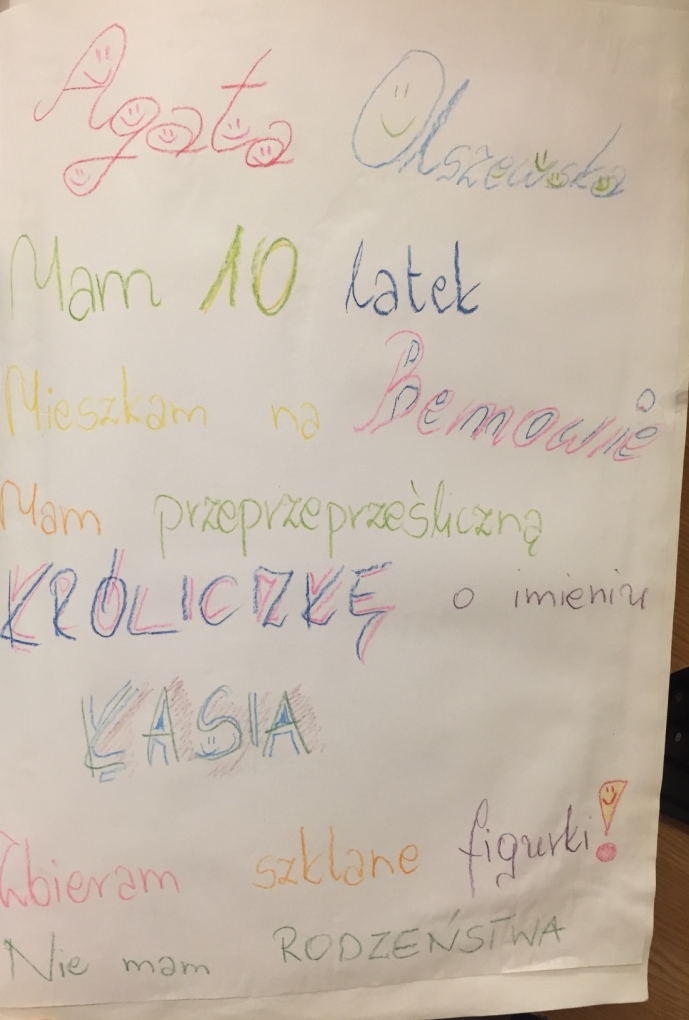 Agata Olszewska
Mam 10 latek
Mieszkam na Bemowie
Mam przeprzeprześliczną
KRÓLICZKĘ o imieniu
KASIA
Zbieram szklane figurki!
Nie mam RODZEŃSTWA